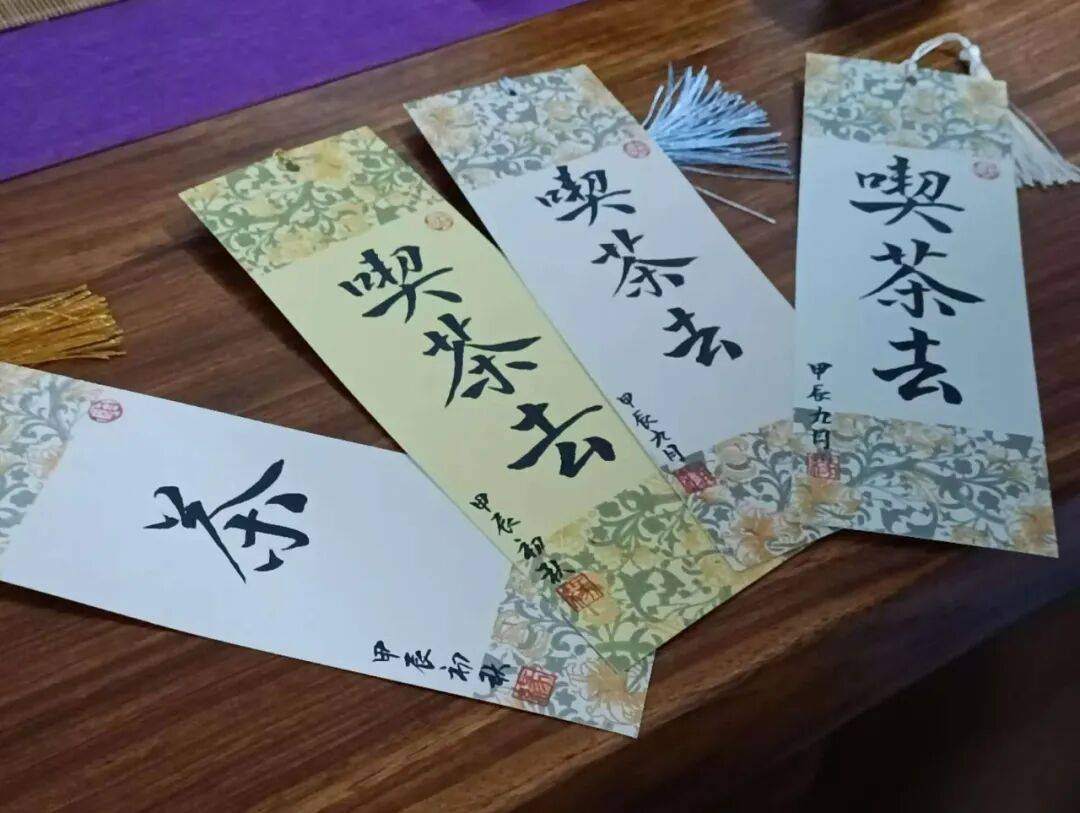 茶
甲辰初秋
喫茶去
甲辰初秋
喫茶去
甲辰九月
喫茶去
甲辰九月